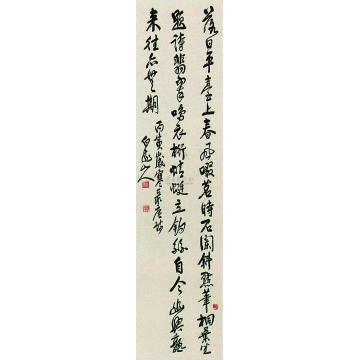 落日平台上春风啜茗时石阑斜点笔桐叶坐
题诗翡翠鸣衣桁蜻蜓立钓丝自今幽兴熟
来往亦无期
丙寅岁寒
山人